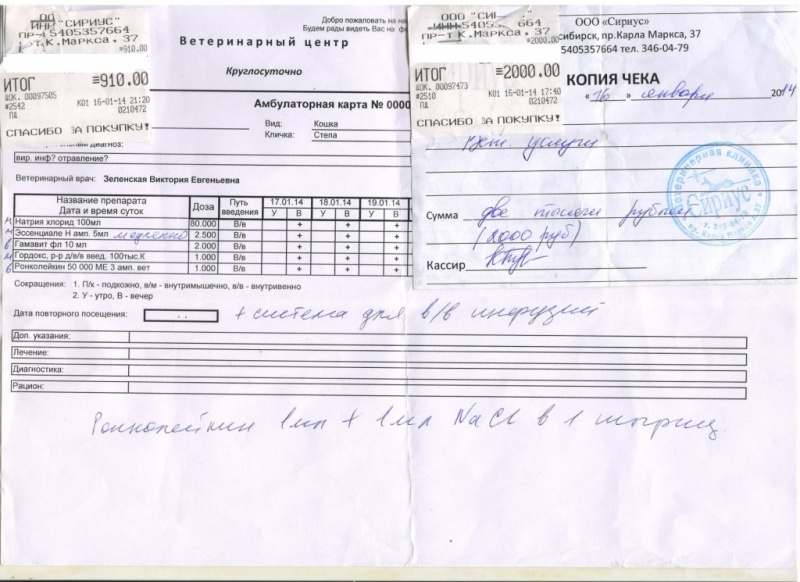 ООО "СИРИУС"
ИНН 5405357664
пр-т К.Маркса, 37
≡910.00
ИТОГ ≡910.00
ДОК. 00097505
#2542 К01 16-01-14 21:20
ПД 0210472
СПАСИБО ЗА ПОКУПКУ!
Добро пожаловать на на
Будем рады видеть Вас на ф
Ветеринарный центр
Круглосуточно
Амбулаторная карта № 0000
Вид: Кошка
Кличка: Степа
диагноз:
вир. инф? отравление?
Ветеринарный врач: Зеленская Виктория Евгеньевна
Название препарата Дата и время суток Доза Путь введения 17.01.14 18.01.14 19.01.14
У В У В У В
Натрия хлорид 100мл 80.000 В/в + + +
Эссенциале Н амп. 5мл медленно 2.500 В/в + + +
Гамавит фл 10 мл 2.000 В/в + + +
Гордокс, р-р д/в/в введ. 100тыс.К 1.000 В/в + + +
Ронколейкин 50 000 МЕ 3 амп. вет 1.000 В/в + + +
Сокращения: 1. П/к - подкожно, в/м - внутримышечно, в/в - внутривенно
2. У - утро, В - вечер
Дата повторного посещения: . . + система для в/в инфузий
Доп. указания:
Лечение:
Диагностика:
Рацион:
Ронколейкин 1мл + 1мл NaCl в 1 шприц
ООО "СИРИУС"
ИНН 5405357664
пр-т К.Маркса, 37
≡2000.00
ИТОГ ≡2000.00
ДОК. 00097473
#2510 К01 16-01-14 17:40
ПД 0210472
СПАСИБО ЗА ПОКУПКУ!
ООО «Сириус»
сибирск, пр.Карла Маркса, 37
5405357664 тел. 346-04-79
КОПИЯ ЧЕКА
«16» января 2014
вет. услуги
Сумма две тысячи рублей
(2000 руб)
Кассир
Ветеринарная клиника
Сириус